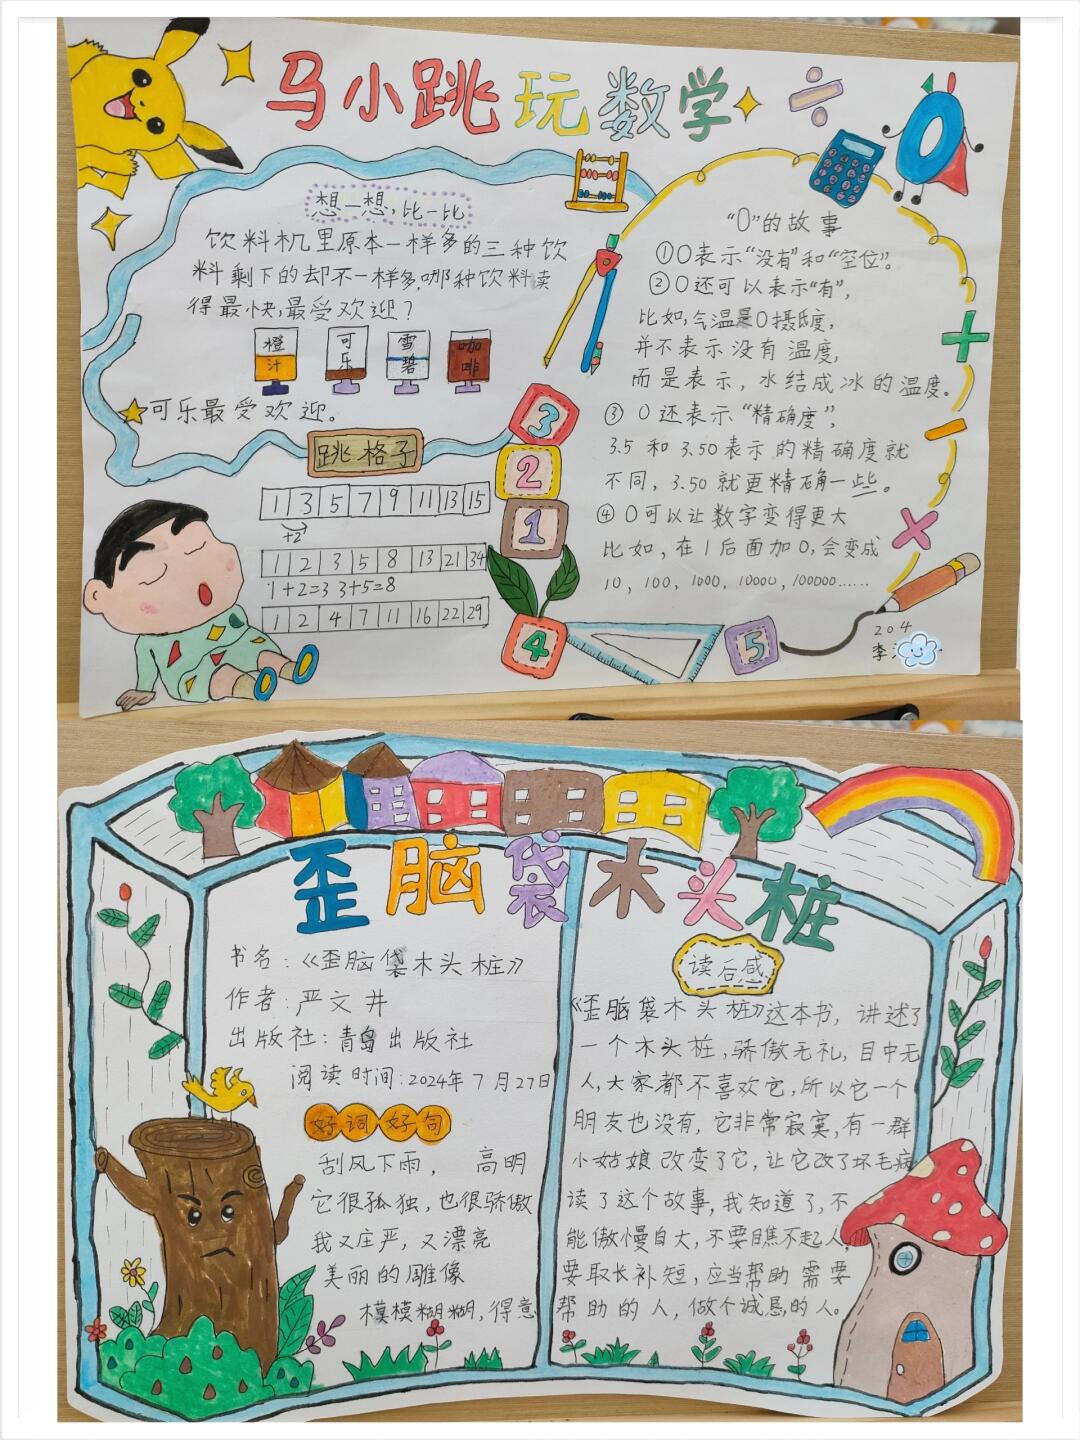 马小跳玩数学
想一想,比一比
饮料机里原本一样多的三种饮
料剩下的却不一样多,哪种饮料卖
得最快,最受欢迎?
橙汁
可乐
雪碧
咖啡
可乐最受欢迎。
跳格子
1 3 5 7 9 11 13 15
+2
1 2 3 5 8 13 21 34
1+2=3 3+5=8
1 2 4 7 11 16 22 29
3
2
1
4
5
“0”的故事
①0表示“没有”和“空位”。
②0还可以表示“有”,
比如,气温是0摄氏度,
并不表示没有温度,
而是表示,水结成冰的温度。
③ 0还表示“精确度”,
3.5 和 3.50表示的精确度就
不同,3.50就更精确一些。
④ 0可以让数字变得更大
比如,在1后面加0,会变成
10, 100, 1000, 10000, 100000……
204
李
歪脑袋木头桩
书名:《歪脑袋木头桩》
作者:严文井
出版社:青岛出版社
阅读时间:2024年7月27日
好词好句
刮风下雨, 高明
它很孤独,也很骄傲
我又庄严,又漂亮
美丽的雕像
模模糊糊,得意
读后感
《歪脑袋木头桩》这本书,讲述了
一个木头桩,骄傲无礼,目中无
人,大家都不喜欢它,所以它一个
朋友也没有,它非常寂寞,有一群
小姑娘改变了它,让它改了坏毛病
读了这个故事,我知道了,不
能傲慢自大,不要瞧不起人,
要取长补短,应当帮助需要
帮助的人,做个诚恳的人。